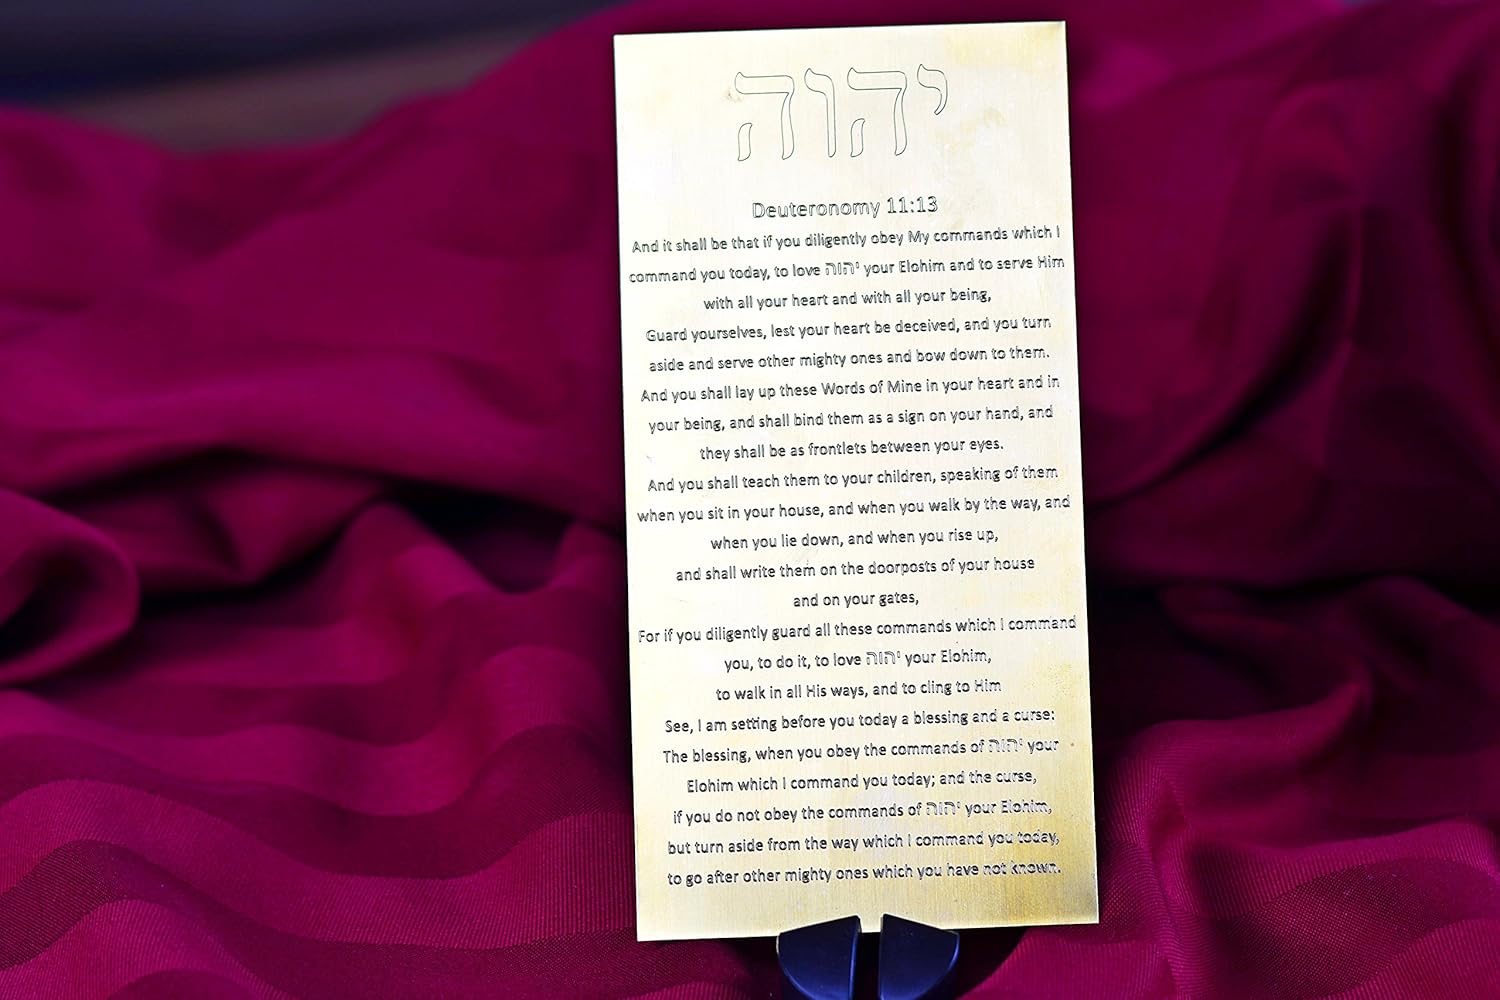 יהוה
Deuteronomy 11:13
And it shall be that if you diligently obey My commands which I
command you today, to love יהוה your Elohim and to serve Him
with all your heart and with all your being,
Guard yourselves, lest your heart be deceived, and you turn
aside and serve other mighty ones and bow down to them.
And you shall lay up these Words of Mine in your heart and in
your being, and shall bind them as a sign on your hand, and
they shall be as frontlets between your eyes.
And you shall teach them to your children, speaking of them
when you sit in your house, and when you walk by the way, and
when you lie down, and when you rise up,
and shall write them on the doorposts of your house
and on your gates,
For if you diligently guard all these commands which I command
you, to do it, to love יהוה your Elohim,
to walk in all His ways, and to cling to Him
See, I am setting before you today a blessing and a curse:
The blessing, when you obey the commands of יהוה your
Elohim which I command you today; and the curse,
if you do not obey the commands of יהוה your Elohim,
but turn aside from the way which I command you today,
to go after other mighty ones which you have not known.